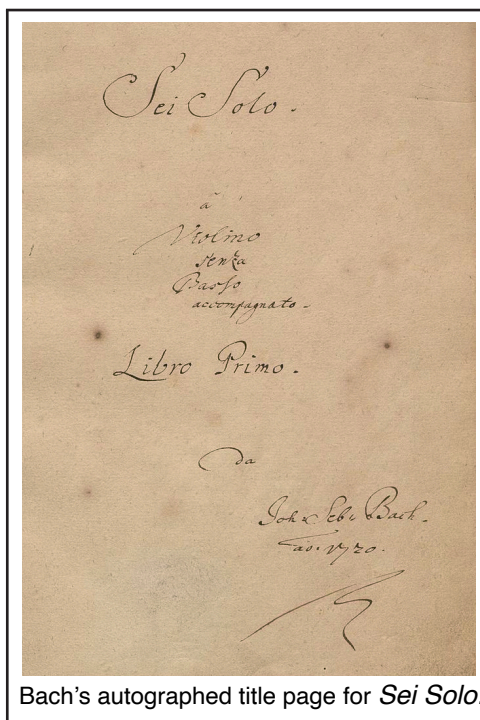 Sei Solo.
â
Violino
senza
Basso
accompagnato.
Libro Primo.
da
Joh: Seb: Bach.
ao. 1720.
Bach's autographed title page for Sei Solo.